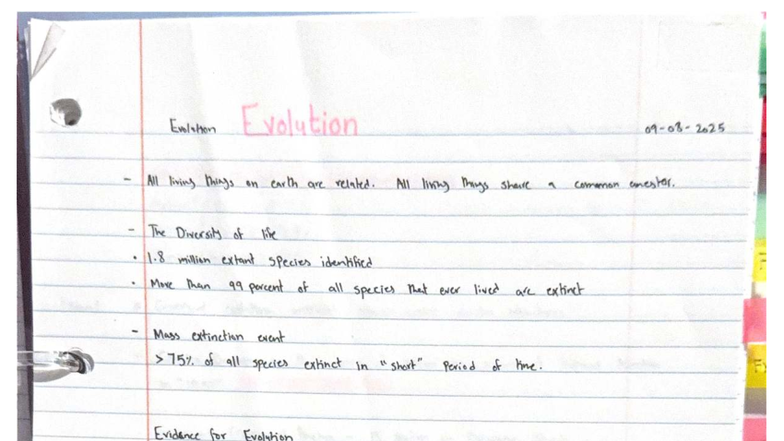 Evolution Evolution 09-03-2025
- All living things on earth are related. All living things share a common ancestor.
- The Diversity of life
• 1.8 million extant species identified
• More than 99 percent of all species that ever lived are extinct
- Mass extinction event
> 75% of all species extinct in "short" period of time.
Evidence for Evolution